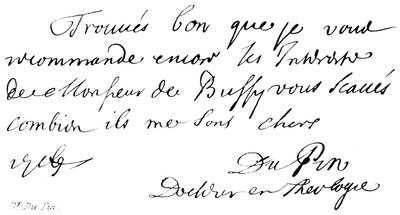 Trouués bon que je vous
recommande encore les Interests
de Monsieur de Bussy vous scaués
combien ils me sont chers
Du Pin
Docteur en Theologie
Mr. Du Pin.